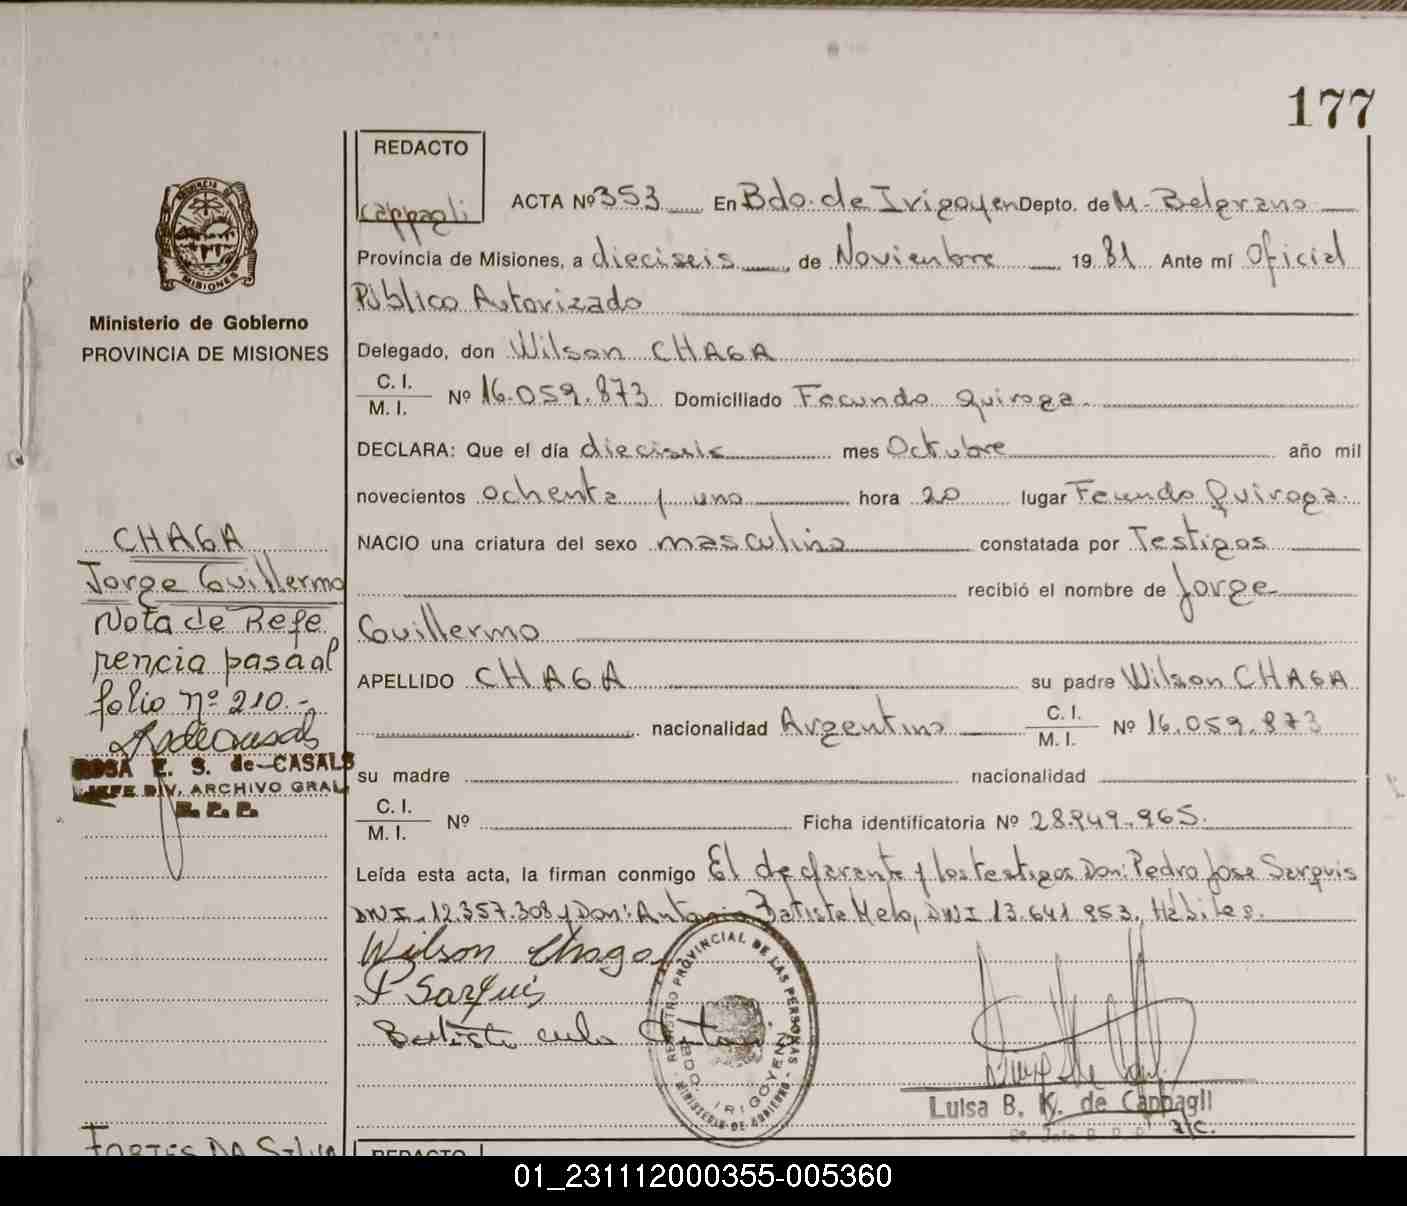 177
REDACTO
Cappagli
ACTA Nº 353 En Bdo. de Irigoyen Depto. de M. Belgrano
Provincia de Misiones, a dieciseis de Noviembre 19 81 Ante mí Oficial
Público Autorizado
Delegado, don Wilson CHAGA
C. I.
M. I. Nº 16.059.873 Domiciliado Facundo Quiroga.
DECLARA: Que el día dieciseis mes Octubre año mil
novecientos ochenta y uno hora 20 lugar Facundo Quiroga.
NACIO una criatura del sexo masculino constatada por Testigos
recibió el nombre de Jorge
Guillermo
APELLIDO CHAGA su padre Wilson CHAGA
nacionalidad Argentina C. I.
M. I. Nº 16.059.873
su madre nacionalidad
C. I.
M. I. Nº Ficha identificatoria Nº 28.949.965.
Leída esta acta, la firman conmigo El declarante y los testigos Don: Pedro Jose Sarquis
DNI. 12.357.308 y Don: Antonio Batista Melo, DNI 13.641.953, Hábiles.
Wilson Chaga
P Sarquis
Batista
REGISTRO PROVINCIAL DE LAS PERSONAS
BDO. IRIGOYEN
MINISTERIO DE GOBIERNO
Luisa B. K. de Cappagli
a/c.
PROVINCIA DE
MISIONES
Ministerio de Gobierno
PROVINCIA DE MISIONES
CHAGA
Jorge Guillermo
Nota de Refe
rencia pasa al
folio nº 210.-
ROSA E. S. de CASALS
JEFE DIV. ARCHIVO GRAL.
R. P. P.
FORTES DA SILVA
REDACTO
01_231112000355-005360